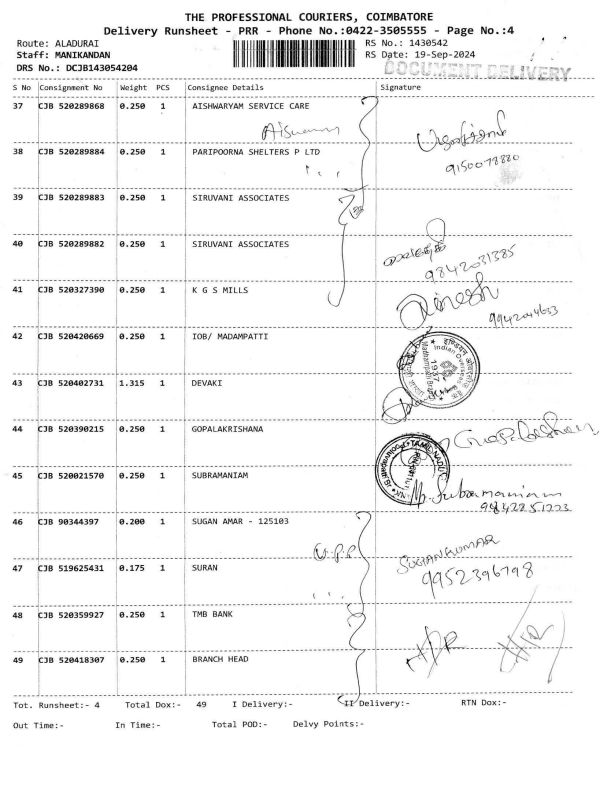 THE PROFESSIONAL COURIERS, COIMBATORE
Delivery Runsheet - PRR - Phone No.:0422-3505555 - Page No.:4
Route: ALADURAI RS No.: 1430542
Staff: MANIKANDAN RS Date: 19-Sep-2024
DRS No.: DCJB143054204 DOCUMENT DELIVERY
S No Consignment No Weight PCS Consignee Details Signature
37 CJB 520289868 0.250 1 AISHWARYAM SERVICE CARE
38 CJB 520289884 0.250 1 PARIPOORNA SHELTERS P LTD
9150078880
39 CJB 520289883 0.250 1 SIRUVANI ASSOCIATES
40 CJB 520289882 0.250 1 SIRUVANI ASSOCIATES
9842031385
41 CJB 520327390 0.250 1 K G S MILLS
Dinesh
9942044633
42 CJB 520420669 0.250 1 IOB/ MADAMPATTI
Indian Overseas
1937
43 CJB 520402731 1.315 1 DEVAKI
44 CJB 520390215 0.250 1 GOPALAKRISHANA
TAMILNADU
45 CJB 520021570 0.250 1 SUBRAMANIAM
P. Subramaniam
9842251223
46 CJB 90344397 0.200 1 SUGAN AMAR - 125103
SUGANKUMAR
47 CJB 519625431 0.175 1 SURAN
9952396798
48 CJB 520359927 0.250 1 TMB BANK
49 CJB 520418307 0.250 1 BRANCH HEAD
Tot. Runsheet:- 4 Total Dox:- 49 I Delivery:- II Delivery:- RTN Dox:-
Out Time:- In Time:- Total POD:- Delvy Points:-